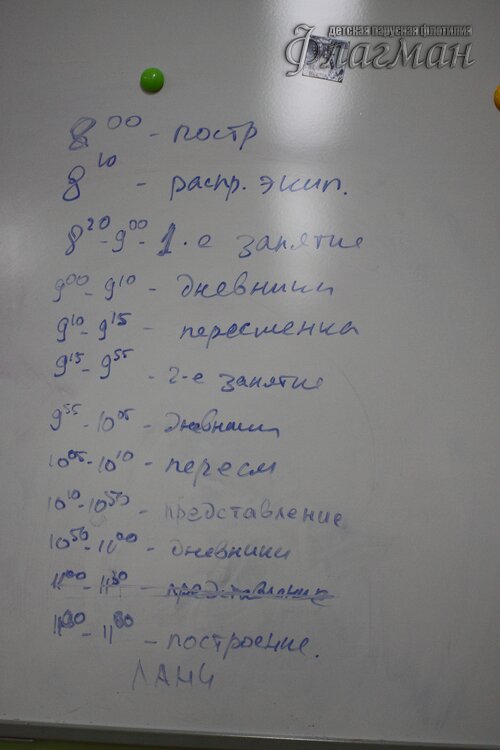 детская парусная флотилия
Флагман
8 00 - постр
8 10 - распр. экип.
8 20 - 9 00 - 1-е занятие
9 00 - 9 10 - дневники
9 10 - 9 15 - пересменка
9 15 - 9 55 - 2-е занятие
9 55 - 10 05 - дневники
10 05 - 10 10 - пересм
10 10 - 10 50 - представление
10 50 - 11 00 - дневники
11 00 - представление
- построение.